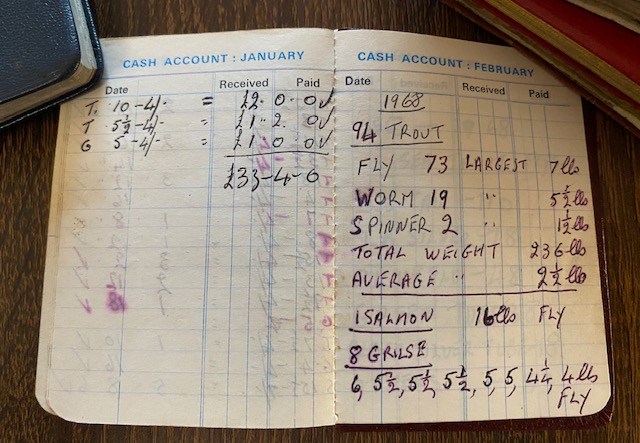 CASH ACCOUNT : JANUARY
Date Received Paid
T. 10 - 4/- = £2. 0. 0 ✓
T 5½ - 4/- = £1. 2. 0 ✓
G 5 - 4/- = £1. 0 0 ✓
£33 - 4 - 0
CASH ACCOUNT : FEBRUARY
Date Received Paid
1968
94 TROUT
FLY 73 LARGEST 7 lbs
WORM 19 " 5½ lbs
SPINNER 2 " 1½ lbs
TOTAL WEIGHT 236 lbs
AVERAGE " 2½ lbs
1 SALMON 16 lbs FLY
8 GRILSE
6, 5½, 5½, 5½, 5, 5, 4½, 4 lbs
FLY